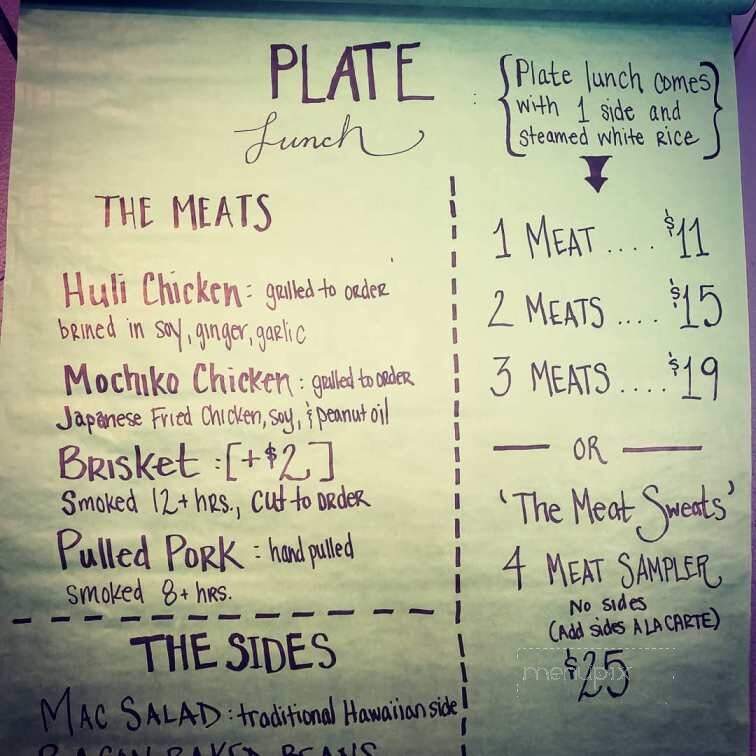 PLATE
Lunch
{Plate lunch comes
with 1 side and
steamed white Rice}
THE MEATS
Huli Chicken: grilled to order
brined in soy, ginger, garlic
Mochiko Chicken: grilled to order
Japanese Fried Chicken, soy, & peanut oil
BRISKET: [+$2]
Smoked 12+ hrs., cut to order
Pulled Pork: hand pulled
smoked 8+ hrs.
THE SIDES
MAC SALAD: traditional Hawaiian side
BACON BAKED BEANS
1 MEAT .... $11
2 MEATS .... $15
3 MEATS .... $19
OR
'The Meat Sweats'
4 MEAT SAMPLER
No sides
(Add sides A LA CARTE)
$25
menupix